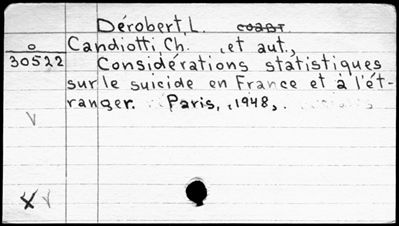 Dérobert, L.
o Candiotti, Ch. et aut.,
30522 Considérations statistiques
sur le suicide en France et à l'ét-
ranger. Paris, 1948,.